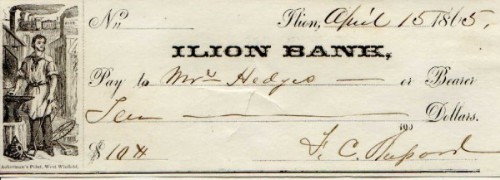 No. Ilion, April 15 1865.
ILION BANK,
Pay to Mrs Hedges or Bearer
Ten Dollars.
100
$10
F. C.
Ackerman's Print, West Winfield.